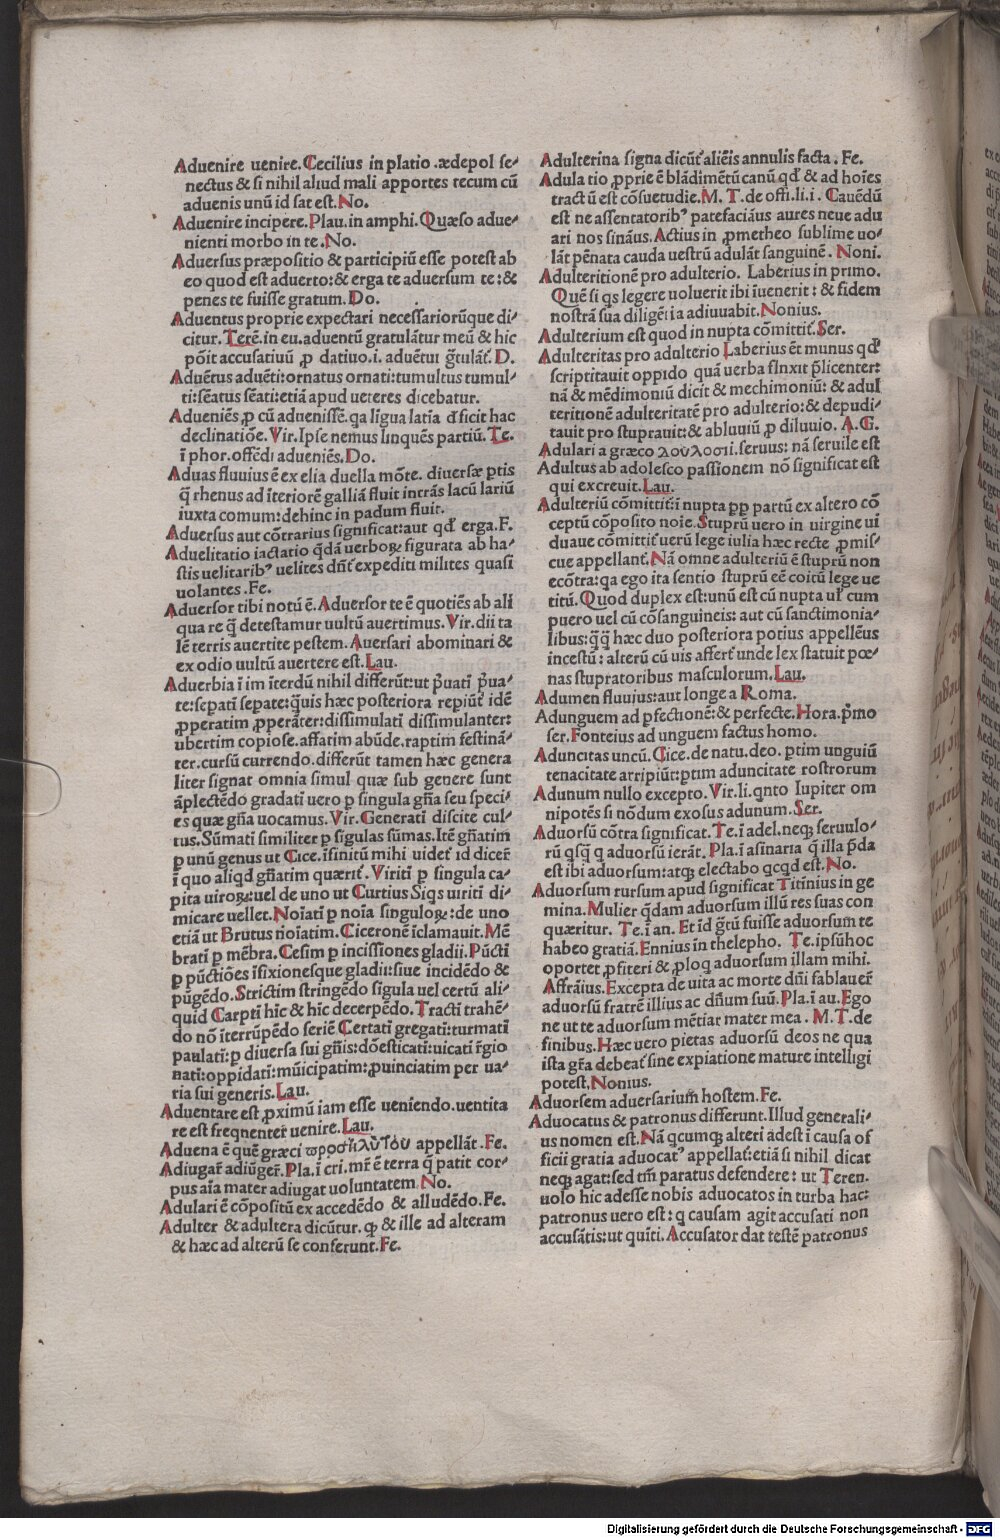 Aduenire uenire. Cecilius in platio. ædepol se⸗
nectus & si nihil aliud mali apportes tecum cū
aduenis unū id sat est. No.
Aduenire incipere. Plau. in amphi. Quæso adue⸗
nienti morbo in te. No.
Aduersus præpositio & participiū esse potest ab
eo quod est aduerto: & erga te aduersum te: &
penes te fuisse gratum. Do.
Aduentus proprie expectari necessariorūque di⸗
citur. Terē. in eu. aduentū gratulātur meū & hic
pōit accusatiuū ꝓ datiuo .i. aduētui g̃tulāt̃. D.
Aduētus aduēti: ornatus ornati: tumultus tumul⸗
ti: sēatus sēati: etiā apud ueteres dicebatur.
Adueniēs ꝓ cū aduenissē. qa ligua latia d̄ficit hac
declinatiōe. Vir. Ipse nemus linquēs partiū. Te.
ī phor. offēdi adueniēs. Do.
Aduas fluuius ē ex elia duella mōte. diuersæ ꝑtis
q̃ rhenus ad īteriorē galliā fluit incrās lacū lariū
iuxta comum: dehinc in padum fluit.
Aduersus aut cōtrarius significat: aut qd̃ erga. F.
Aduelitatio iactatio q̄dā uerboꝝ figurata ab ha⸗
stis uelitaribꝰ uelites dn̄t̃ expediti milites quasi
uolantes. Fe.
Aduersor tibi notū ē. Aduersor te ē quotiēs ab ali
qua re q̃ detestamur uultū auertimus. Vir. dii ta
lē terris auertite pestem. Auersari abominari &
ex odio uultū auertere est. Lau.
Aduerbia ī im īterdū nihil differūt: ut p̃uati p̃ua⸗
te: sepati sepate: q̃uis hæc posteriora repiūt̃ idē
ꝓperatim ꝓperāter: dissimulati dissimulanter:
ubertim copiose. affatim abūde. raptim festinā⸗
ter. cursū currendo. differūt tamen hæc genera
liter signat omnia simul quæ sub genere sunt
āplectēdo gradati uero ꝑ singula gn̄a seu speci⸗
es quæ gn̄a uocamus. Vir. Generati discite cul⸗
tus. Sūmati similiter ꝑ sigulas sūmas. Itē gn̄atim
ꝑ unū genus ut Cice. ifinitū mihi uidet̃ id dicer̃
ī quo aliqd gn̄atim quærit̃. Viriti ꝑ singula ca⸗
pita uiroꝝ: uel de uno ut Curtius Siqs uiriti di⸗
micare uellet. Noiati ꝑ noia singuloꝝ: de uno
etiā ut Brutus noiatim. Ciceronē īclamauit. Mē
brati ꝑ mēbra. Cesim ꝑ incissiones gladii. Pūcti
ꝑ pūctiōes īfixionesque gladii: siue incidēdo &
pūgēdo. Strictim stringēdo sigula uel certū ali⸗
quid Carpti hic & hic decerpēdo. Tracti trahē⸗
do nō īterrūpēdo seriē Certati gregati: turmati
paulati: ꝑ diuersa sui gn̄is: dōesticati: uicati r̃gio
nati: oppidati: mūicipatim: ꝓuinciatim per ua⸗
ria sui generis. Lau.
Aduentare est ꝓximū iam esse ueniendo. uentita
re est freqnenter uenire. Lau.
Aduena ē quē græci ϖροσηλυτου appellāt. Fe.
Adiugar̃ adiūger̃. Pla. ī cri. mr̃ ē terra q̃ patit cor⸗
pus aīa mater adiugat uoluntatem. No.
Adulari ē cōpositū ex accedēdo & alludēdo. Fe.
Adulter & adultera dicūtur. ꝙ & ille ad alteram
& hæc ad alterū se conferunt. Fe.
Adulterina signa dicūt̃ aliēis annulis facta. Fe.
Adula tio ꝓprie ē blādimētū canū qd̃ & ad hoīes
tract ū est cōsuetudie. M. T. de offi. li. i. Cauēdū
est ne assentatoribꝰ patefaciāus aures neue adu
ari nos sināus. Actius in ꝓmetheo sublime uo⸗
lāt pēnata cauda uestrū adulāt sanguinē. Noni.
Adulteritionē pro adulterio. Laberius in primo.
Quē si qs legere uoluerit ibi īuenerit: & fidem
nostrā sua diligēti a adiuuabit. Nonius.
Adulterium est quod in nupta cōmittit̃. Ser.
Adulteritas pro adulterio Laberius ēt munus qd̃
scriptitauit oppido quā uerba finxit p̃licenter:
nā & mēdimoniū dicit & mechimoniū: & adul
teritionē adulteritatē pro adulterio: & depudi⸗
tauit pro stuprauit: & abluuiū ꝓ diluuio. A. G.
Adulari a græco λουλοσιι. seruus: nā seruile est
Adultus ab adolesco passionem nō significat est
qui excreuit. Lau.
Adulteriū cōmittit̃: ī nupta ꝓp partū ex altero cō
ceptū cōposito noie. Stuprū uero in uirgine ui
duaue cōmittit̃ uerū lege iulia hæc recte ꝓmis⸗
cue appellant̃. Nā omne adulteriū ē stuprū non
ecōtra: qa ego ita sentio stuprū eē coitū lege ue
titū. Quod duplex est: unū est cū nupta ul̃ cum
puero uel cū cōsanguineis: aut cū sanctimonia⸗
libus: q̃q̃ hæc duo posteriora potius appellēus
incestū: alterū cū uis affert̃ unde lex statuit pœ⸗
nas stupratoribus masculorum. Lau.
Adumen fluuius: aut longe a Roma.
Adunguem ad ꝑfectionē: & perfecte. Hora. p̃mo
ser. Fonteius ad unguem factus homo.
Aduncitas uncū. Cice. de natu. deo. ꝑtim unguiū
tenacitate arripiūt: ꝑtim aduncitate rostrorum
Adunum nullo excepto. Vir. li. qnto Iupiter om
nipotēs si nōdum exosus adunum. Ser.
Aduorsū cōtra significat. Te. ī adel. neqꝫ seruulo⸗
rū qsq̃ q aduorsū ierāt. Pla. ī asinaria q̃ illa p̃da
est ibi aduorsum: atqꝫ electabo qcqd est. No.
Aduorsum rursum apud significat Titinius in ge
mina. Mulier q̄dam aduorsum illū res suas con
quæritur. Te. ī an. Et id g̃tū fuisse aduorsum te
habeo gratiā. Ennius in thelepho. Te. ipsūhoc
oportet ꝓfiteri & ꝓloq aduorsum illam mihi.
Affrāius. Excepta de uita ac morte dn̄i fablauer̃
aduorsū fratrē illius ac dn̄um suū. Pla. ī au. Ego
ne ut te aduorsum mētiar mater mea. M. T. de
finibus. Hæc uero pietas aduorsū deos ne qua
ista gr̄a debeat̃ sine expiatione mature intelligi
potest. Nonius.
Aduorsem aduersarium̄ hostem. Fe.
Aduocatus & patronus differunt. Illud generali⸗
us nomen est. Nā qcumqꝫ alteri adest ī causa of
ficii gratia aduocatꝰ appellat̃: etiā si nihil dicat
neqꝫ agat: sed tm̄ paratus defendere: ut Teren.
uolo hic adesse nobis aduocatos in turba hac:
patronus uero est: q causam agit accusati non
accusātis: ut quiti. Accusator dat testē patronus
Digitalisierung gefördert durch die Deutsche Forschungsgemeinschaft - DFG